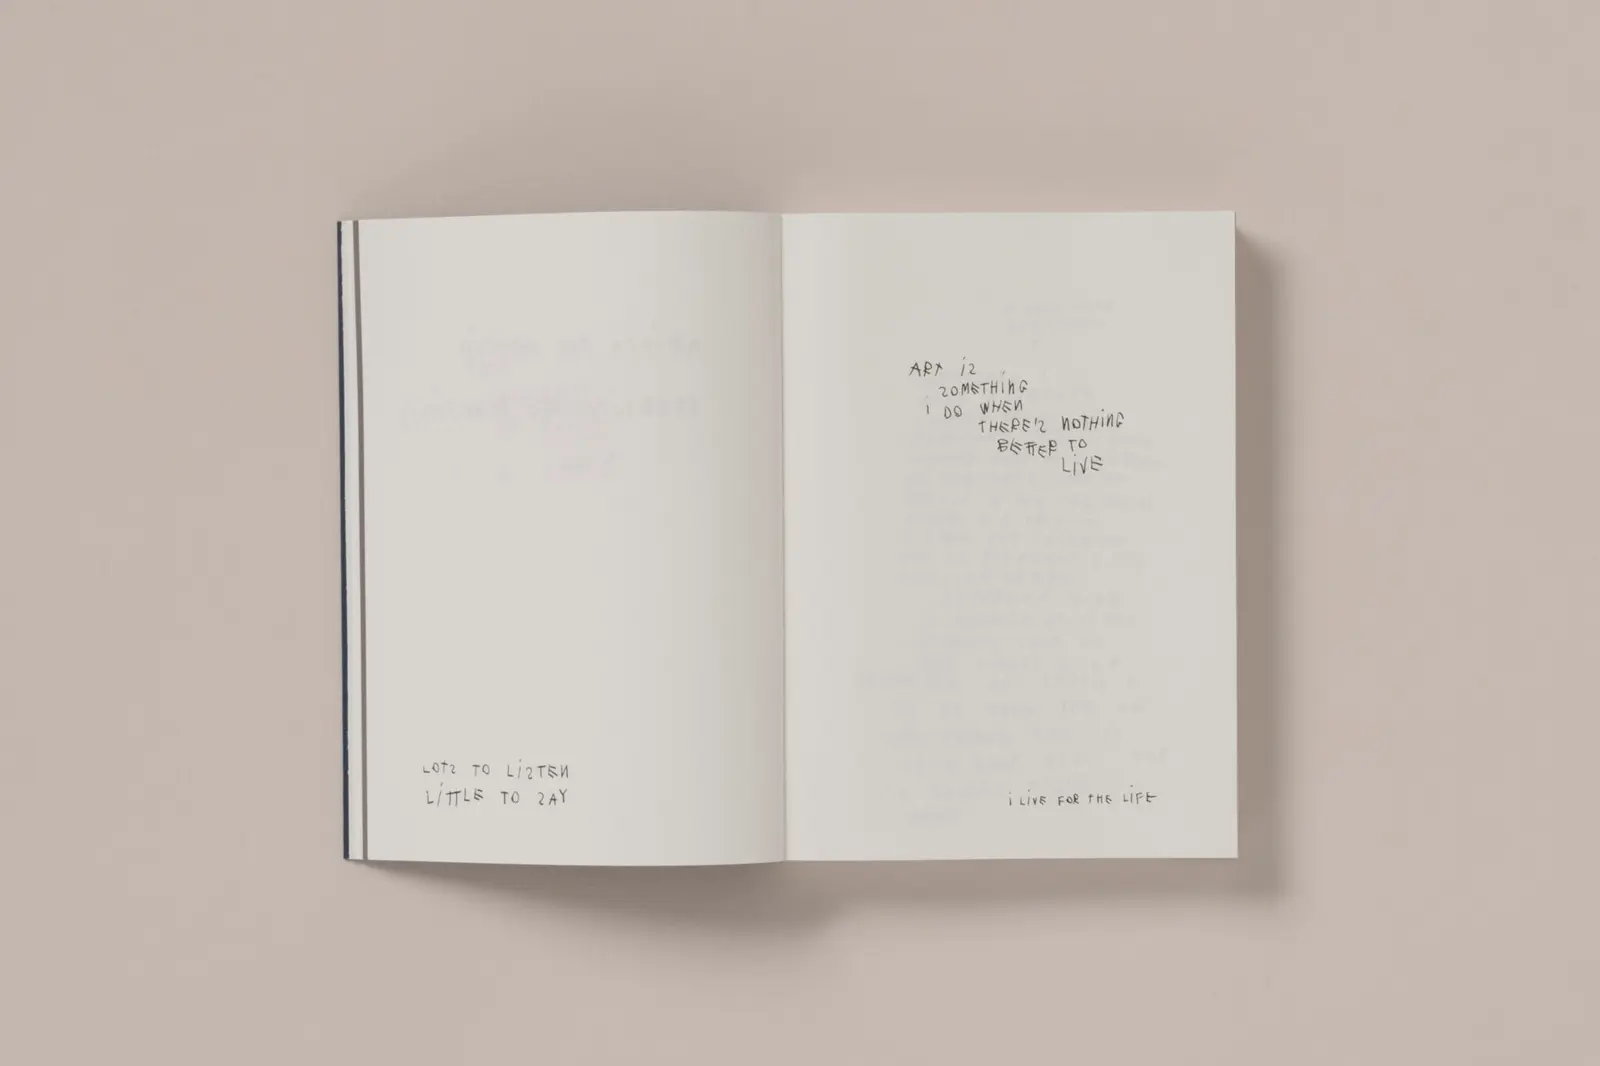 LOTS TO LiSTEN
LiTTLE TO SAY
ART iS
SOMETHiNG
i DO WHEN
THERE'S NOTHiNG
BETTER TO
LiVE
i LiVE FOR THE LiFE